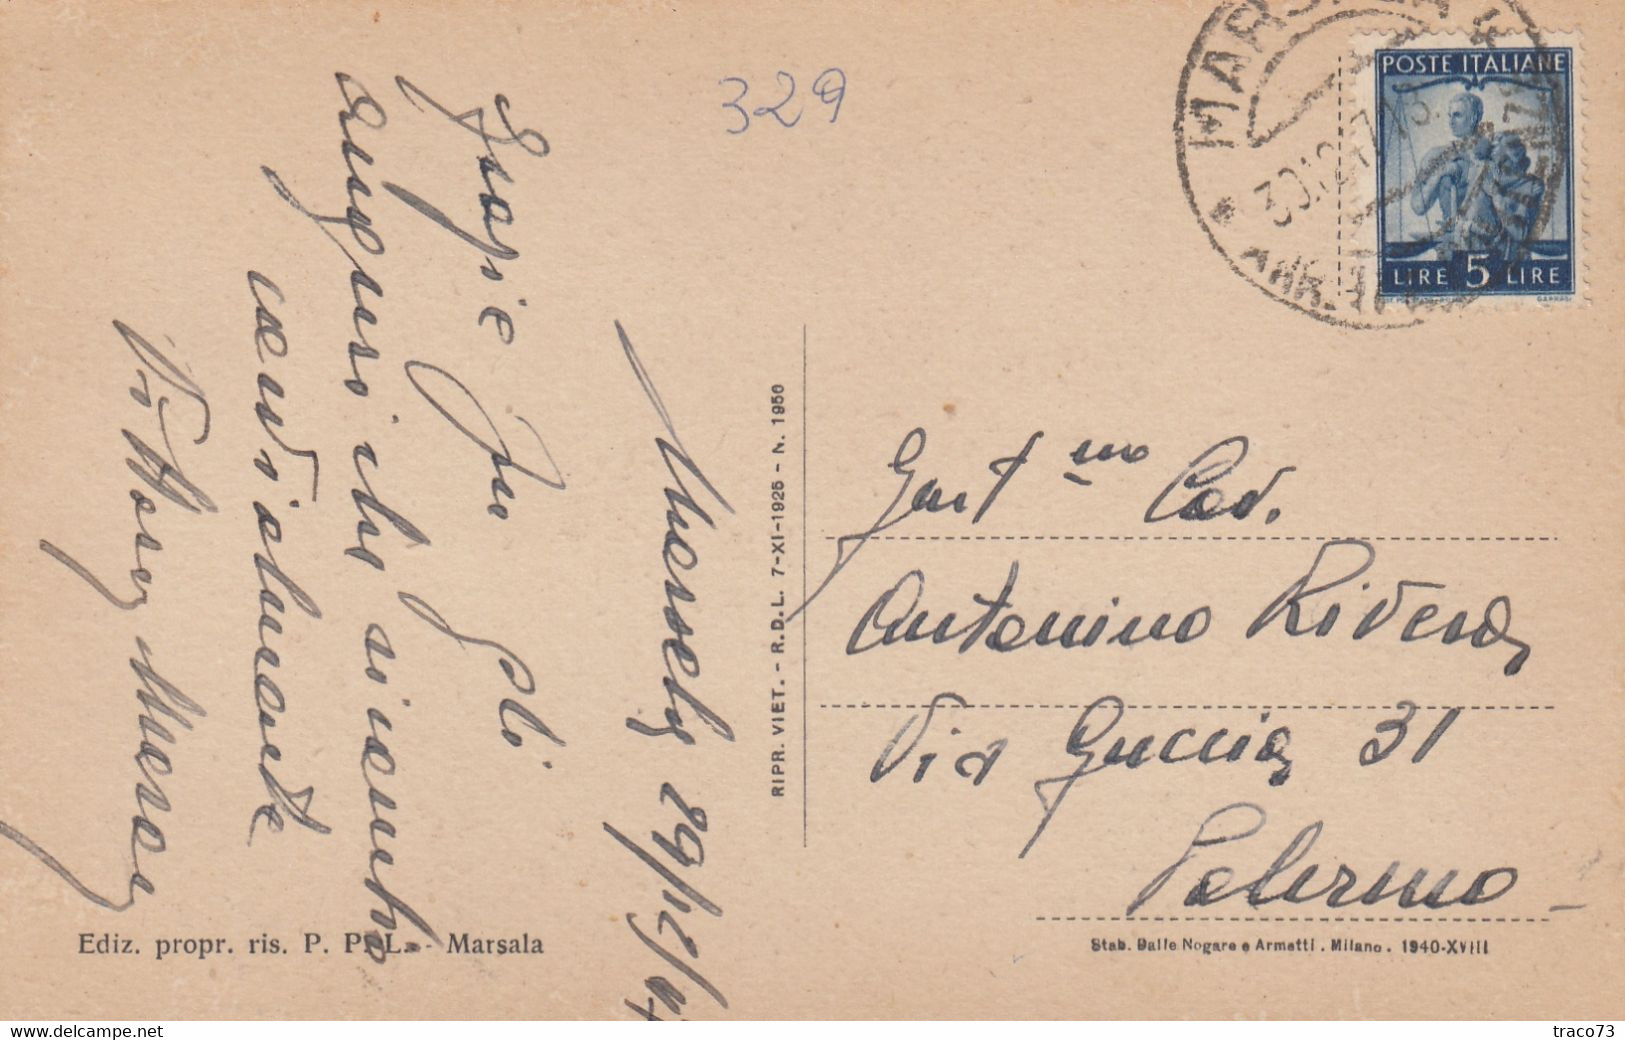 Marsala 29/12/47
Grazie per gli
auguri che ricambio
cordialmente
329
MARSALA
30.12.47
POSTE ITALIANE
LIRE 5 LIRE
RIPR. VIET. - R.D.L. 7-XI-1925 - N. 1950
Gent mo Cav.
Antonino Rivera
Via Guccia 31
Palermo
Ediz. propr. ris. P. P. L. - Marsala
Stab. Dalle Nogare e Armetti . Milano . 1940-XVIII
delcampe.net
traco73